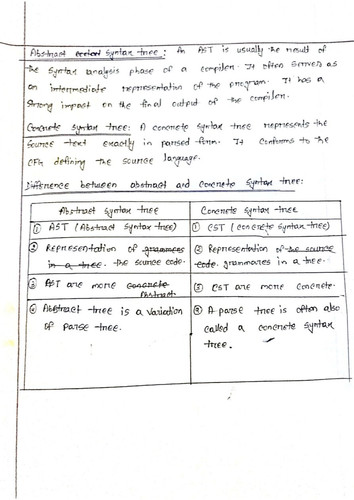 Abstract syntax tree: An AST is usually the result of
the syntax analysis phase of a compiler. It often serves as
an intermediate representation of the program. It has a
strong impact on the final output of the compiler.
Concrete syntax tree: A concrete syntax tree represents the
source text exactly in parsed form. It conforms to the
CFG defining the source language.
Difference between abstract and concrete syntax tree:
Abstract syntax tree
Concrete syntax tree
① AST (Abstract syntax tree)
① CST (concrete syntax tree)
② Representation of grammars
in a tree. the source code.
② Representation of the source
code. grammars in a tree.
③ AST are more concrete
Abstract.
③ CST are more concrete.
④ Abstract tree is a variation
of parse tree.
④ A parse tree is often also
called a concrete syntax
tree.